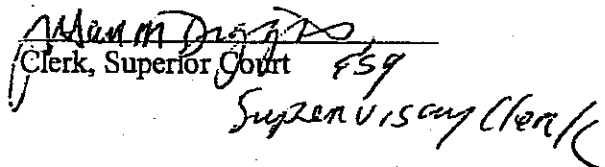 Clerk, Superior Court Esq
Supervisory Clerk